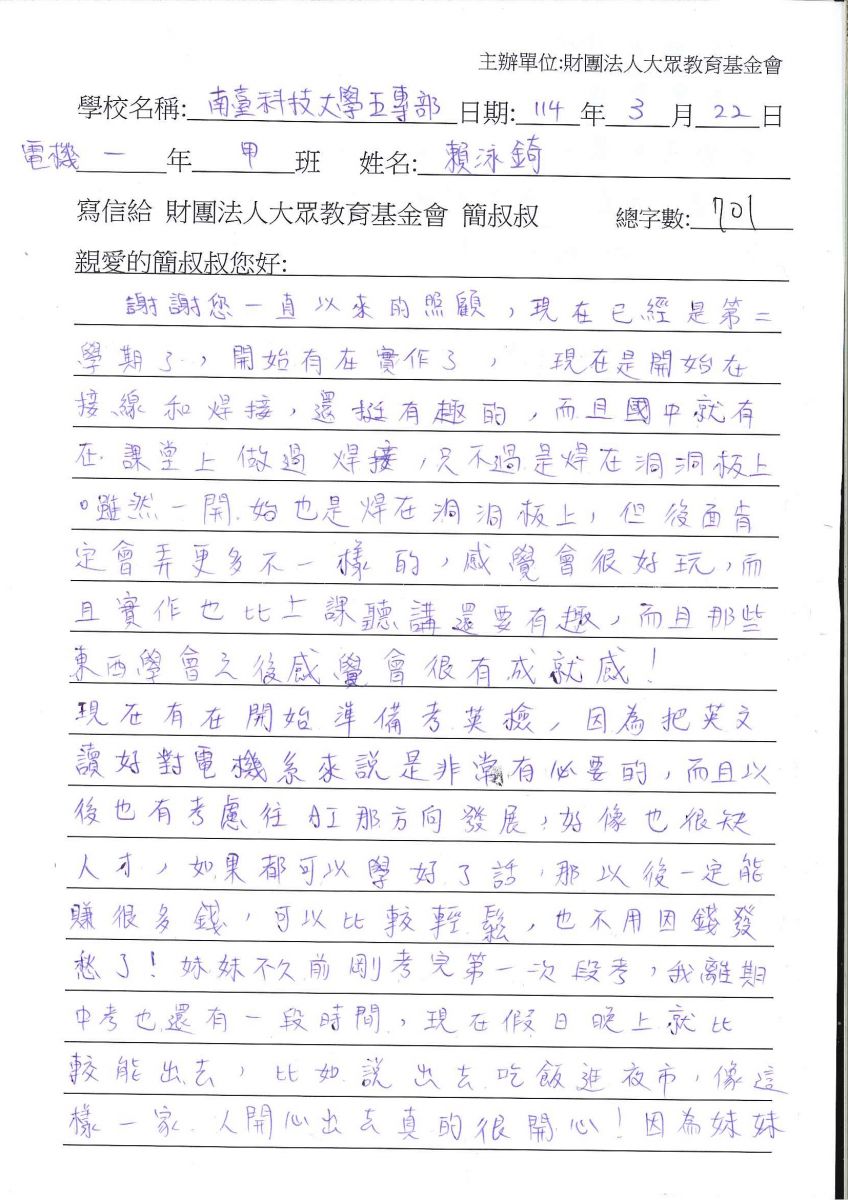 主辦單位:財團法人大眾教育基金會
學校名稱: 南臺科技大學五專部 日期: 114 年 3 月 22 日
電機 一 年 甲 班 姓名: 賴泳錡
寫信給 財團法人大眾教育基金會 簡叔叔 總字數: 701
親愛的簡叔叔您好:
謝謝您一直以來的照顧，現在已經是第二
學期了，開始有在實作了，現在是開始在
接線和焊接，還挺有趣的，而且國中就有
在課堂上做過焊接，只不過是焊在洞洞板上
。雖然一開始也是焊在洞洞板上，但後面肯
定會弄更多不一樣的，感覺會很好玩，而
且實作也比上課聽講還要有趣，而且那些
東西學會之後感覺會很有成就感！
現在有在開始準備考英檢，因為把英文
讀好對電機系來說是非常有必要的，而且以
後也有考慮往AI那方向發展，好像也很缺
人才，如果都可以學好了話，那以後一定能
賺很多錢，可以比較輕鬆，也不用因錢發
愁了！妹妹不久前剛考完第一次段考，我離期
中考也還有一段時間，現在假日晚上就比
較能出去，比如說出去吃飯逛夜市，像這
樣一家人開心出去真的很開心！因為妹妹